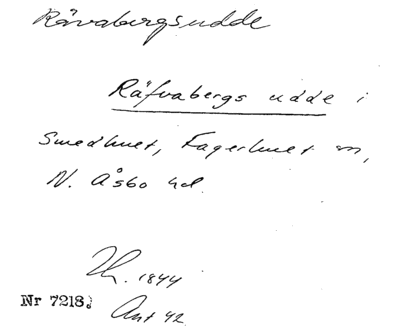 Rävabergsudde
Räfvabergs udde i
Smedhult, Fagerhult sn,
N. Åsbo hd.
Th. 1844
Nr 7218.
Ant 42